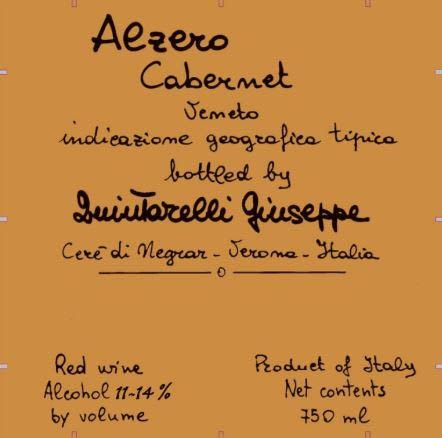 Alzero
Cabernet
Veneto
indicazione geografica tipica
bottled by
Quintarelli Giuseppe
Cerè di Negrar - Verona - Italia
Red wine
Alcohol 11-14%
by volume
Product of Italy
Net contents
750 ml